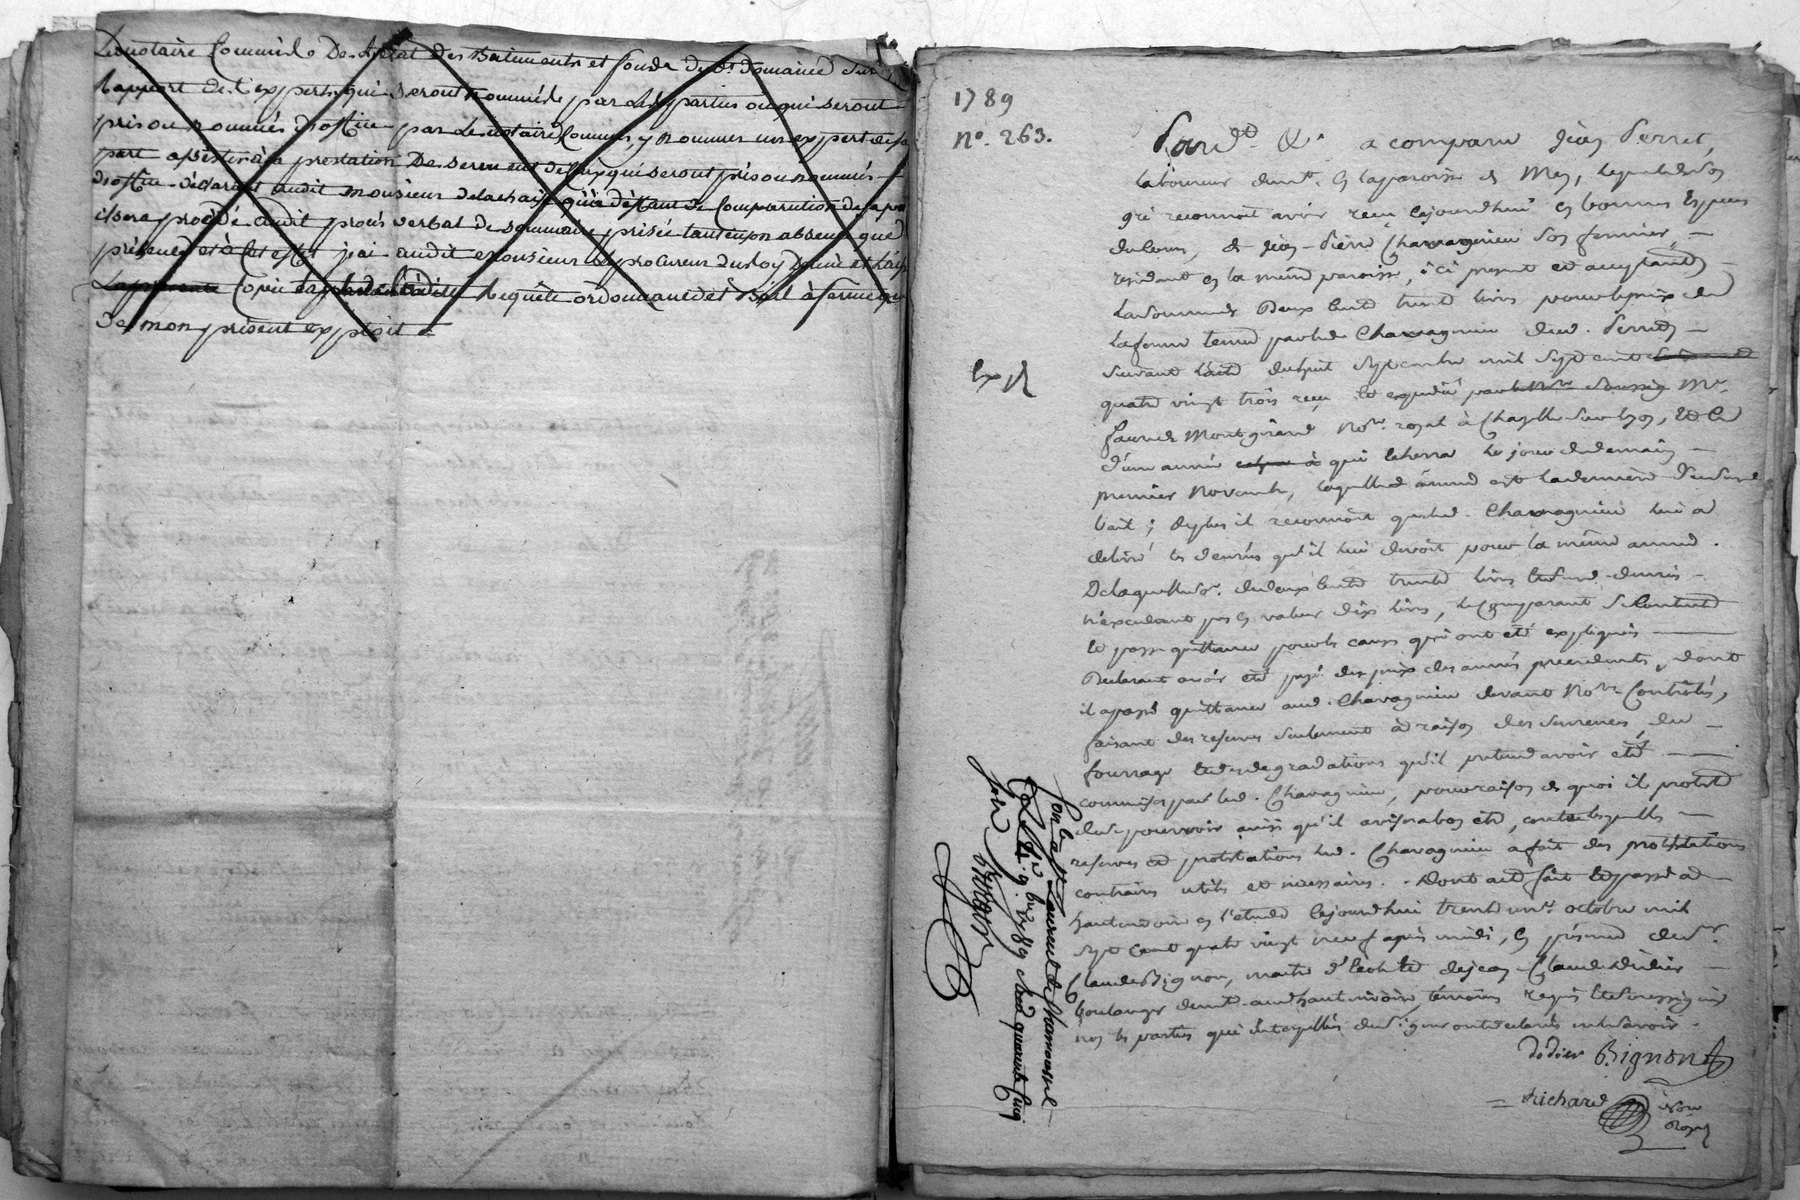 Le notaire Commis De l'état des Batiments et fonds dud. domaine sur le
Rapport de l'expert qui seront nommés par les parties ou qui seront
pris ou nommés d'office par le notaire commis, y nommer un expert de sa
part assister à la prestation De serment de ceux qui seront pris ou nommés
d'office déclarant audit monsieur delachaise qu'à deffaut de Comparution de sa part
il sera procédé audit procés verbal de sommaire prisée tant en son absence que
présence et à cet effet j'ai audit monsieur le procureur du roy Donné et laissé
Copie de ladite Requête ordonnance et Bail à ferme que
De mon présent exploit
1789
N°. 263.
Pard.t &.a a comparu Jean Perret,
laboureur demt. en la paroisse de Mey, lequel de son
gré reconnoit avoir reçu cejourdhui en bonnes Especes
du cours, de Jean-Pierre Chavagnieu son fermier,
residant en la même paroisse, ici présent et acceptant
la somme de Deux Cent trente livres pour le prix de
la ferme tenue par led. Chavagnieu dud. Perret
suivant l'acte du huit Septembre mil sept cent
quatre vingt trois reçu et expedié par Me.
Montgirand Nore. royal à Chazelle sur lyon, et ce
d'une année qui echerra le jour de demain
premier Novembre, laquelle année est la derniere dudit
bail; de plus il reconnoit que led. Chavagnieu lui a
delivré les denrées qu'il lui devoit pour la même année.
De laquelle so.e de deux Cent trente livres et desd. denrées
n'excedant pas en valeur dix livres, le Comparant se contente
et passe quittance pour les causes qui ont été expliquées
Declarant avoir été payé des prix des années precedentes, dont
il a passé quittance aud. Chavagnieu devant Nore. Contrôlés,
faisant des reserves seulement à raison des semences, du
fourrage et des degradations qu'il pretend avoir été
commises par led. Chavagnieu, pour raison de quoi il proteste
de se pourvoir ainsi qu'il avisera bon être, contre lesquelles
reserves et protestations led. Chavagnieu a fait des protestations
contraires utiles et necessaires. Dont acte fait et passé à
hauterivoire en l'etude cejourdhui trente un. octobre mil
sept cent quatre vingt neuf après midi, en présence de sr.
Claude Bignon, maitre d'Ecole et de jean Claude Didier
boulanger demt. aud. hauterivoire, témoins requis et soussignés
non les parties qui interpellées de signer ont declaré ne le savoir.
Didier Bignon
Richard Nore
Royal
Exp.
Conlé. a St Laurent de Chamousset
le 9 bre 1789 Reçu quarante cinq
sols